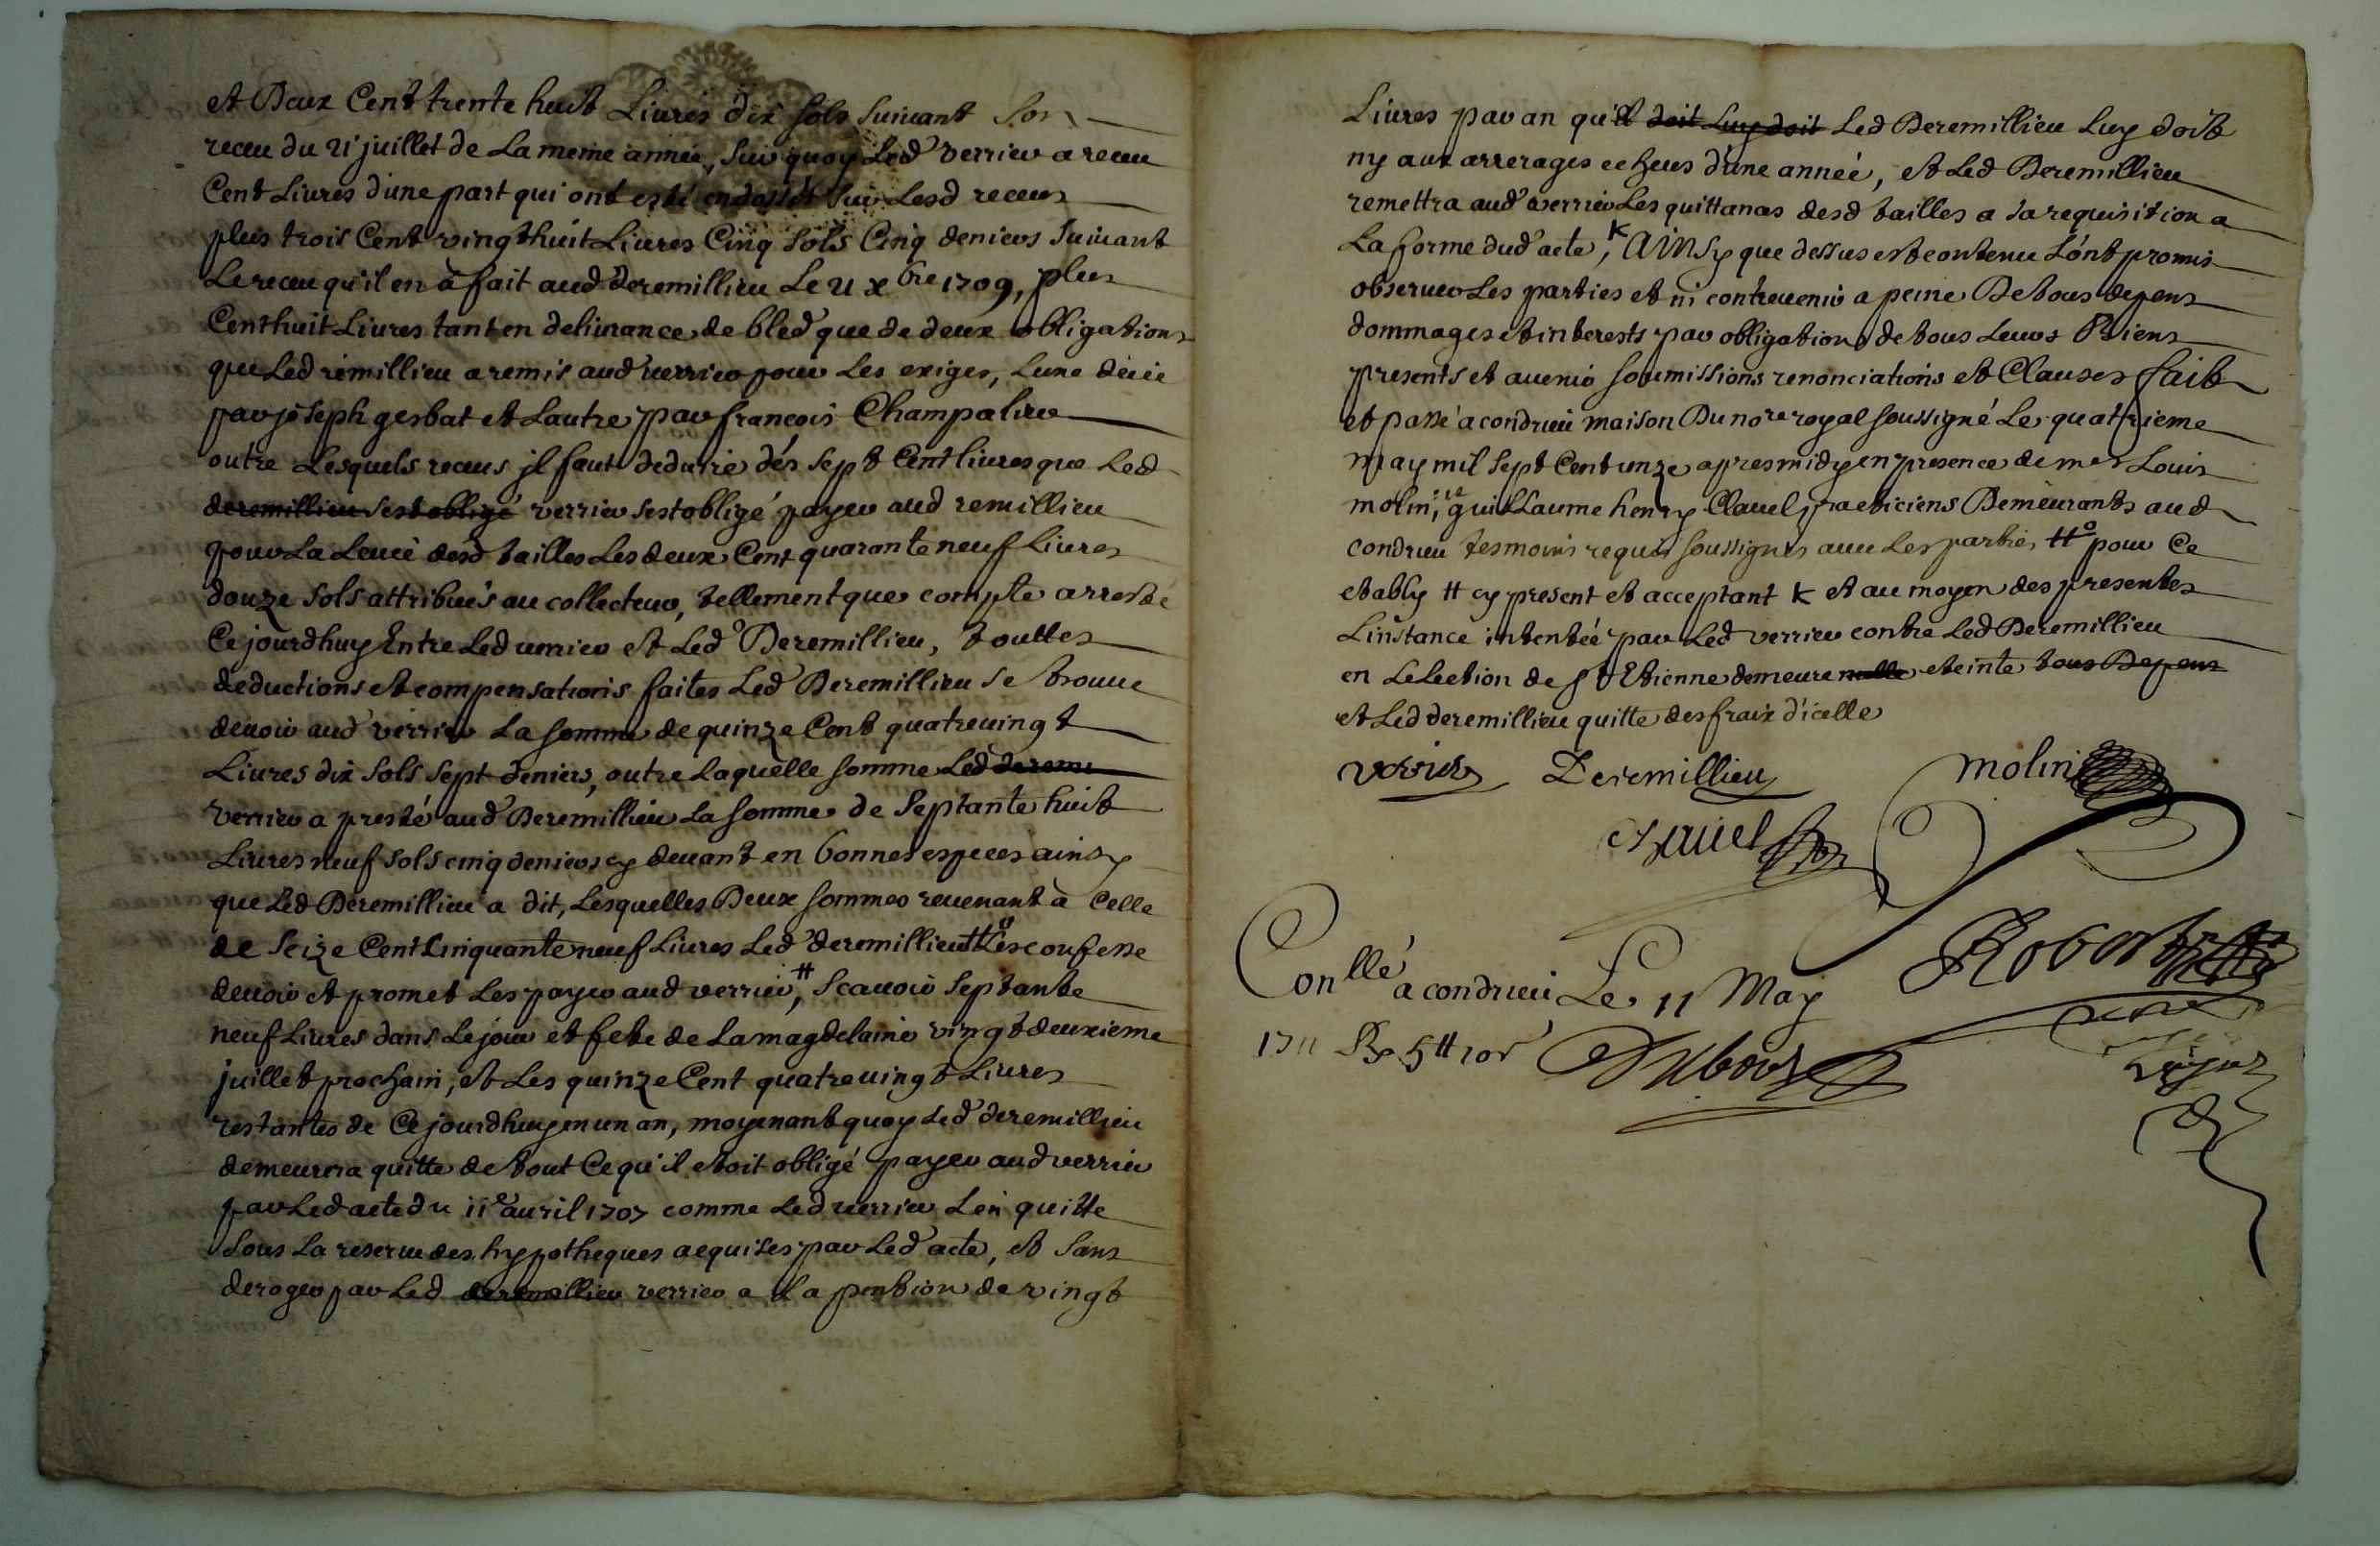 et Deux Cent trente huit Livres dix sols suivant son
receu du 21 juillet de La meme année, sur quoy Led verrier a receu
Cent Livres d'une part qui ont esté endossét sur Lesd receus
plus trois Cent vingt huit Livres Cinq sols Cinq deniers suivant
Le receu qu'il en à fait aud deremillieu Le 21 xbre 1709, plus
Cent huit Livres tant en delivrance de bled que de deux obligations
que Led remillieu a remis aud verrier pour Les exiger, Lune deüe
par joseph gerbat et Lautre par francois Champalier
outre Lesquels receus jl faut deduire des sept Cent livres que Led
deremillieu sest obligé verrier sest obligé payer aud remillieu
pour La Leueé desd tailles Les deux Cent quarante neuf Livres
douze sols attribués au collecteur, tellement que compte arresté
Cejourdhuy Entre Led verrier et Led Deremillieu, touttes
deductions et compensations faites Led Deremillieu se trouve
devoir aud verrier La somme de quinze Cent quatrevingt
Livres dix sols sept deniers, outre Laquelle somme Led deremi
verrier a presté aud Deremillieu La somme de septante huit
Livres neuf sols cinq deniers cy devant en bonnes especes ainsy
que Led Deremillieu a dit, Lesquelles Deux sommes revenant à Celle
de seize Cent Cinquante neuf Livres Led deremillieu # Les confesse
devoir et promet Les payer aud verrier, # scavoir septante
neuf Livres dans Le jour et fete de La magdelaine vingt deuxieme
juillet prochain, et Les quinze Cent quatrevingt Livres
restantes de Cejourdhuy en un an, moyenant quoy Led deremillieu
demeurera quitte de tout Ce qu'il etoit obligé payer aud verrier
par Led acte du 11e auril 1707 comme Led verrier L'en quitte
sous La reserve des hypotheques aequises par Led acte, et sans
deroger par Led deremillieu verrier a La pention de vingt
Livres par an qu'il doit Luy doit Led Deremillieu Luy doit
ny aux arrerages echeus d'une année, et Led Deremillieu
remettra aud verrier Les quittances desd tailles a sa requisition a
La forme dud acte, K AINSy que dessus est contenu L'ont promis
observer Les parties et ni contrevenir a peine De tous depens
dommages et interests par obligation de tous Leurs Biens
presents et avenir soumissions renonciations et Clauses fait
et passé a condrieu maison Du nore royal soussigné Le quatrieme
may mil sept Cent unze apres midy en presence de mes Louis
molin, guillaume henry Clavel praticiens Demeurants aud
condrieu tesmoins requis soussignés avec Les parties # pour Ce
etably # cy present et acceptant K et au moyen des presentes
L'instance intentée par Led verrier contre Led Deremillieu
en Lelection de st Etienne demeure nulle eteinte tous Depens
et Led deremillieu quitte des fraix d'icelle
verrier Deremillieu molin
Clavel
Robert
Conllé a condrieu Le 11 May
1711 Rx 5# 10s Dubois